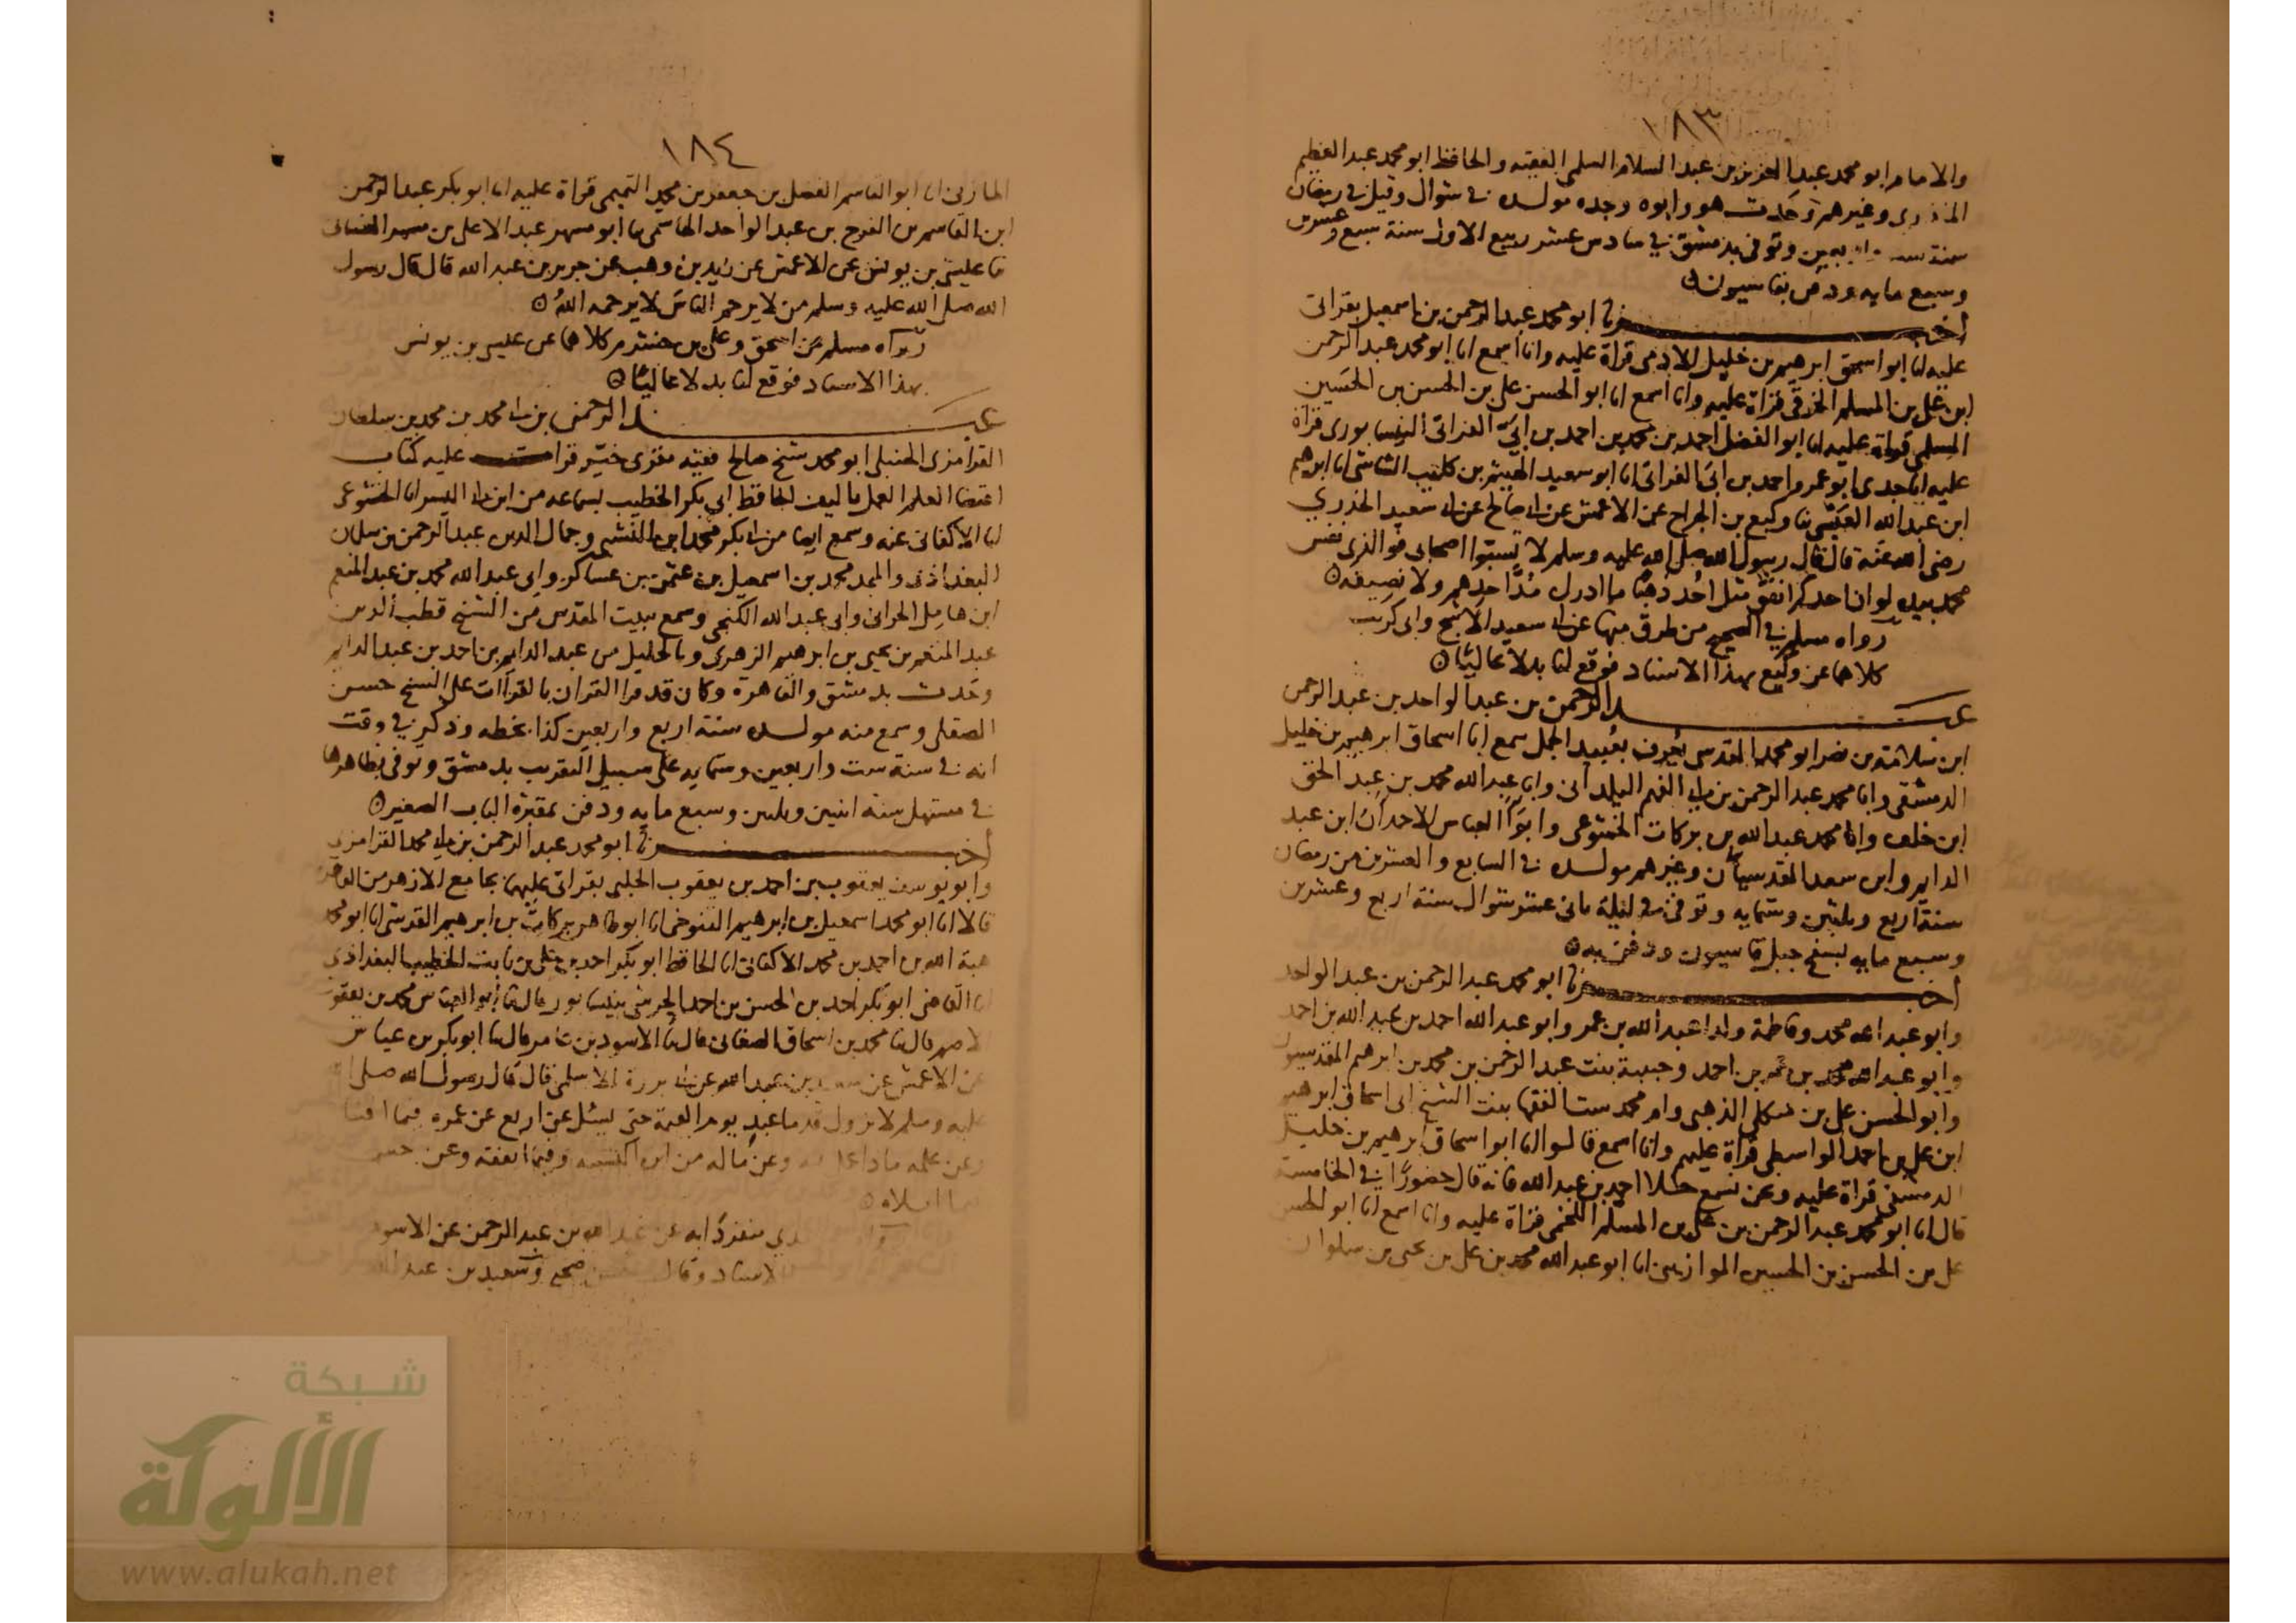 ١٨٣
والامام ابو محمد عبد العزيز بن عبد السلام السلمي الفقيه والحافظ ابو محمد عبد العظيم
المنذري وغيرهم وحدث هو وابوه وجده مولده في شوال وقيل في رمضان
سنة واربعين وتوفى بدمشق في سادس عشر ربيع الاول سنة سبع وعشرين
وسبع مايه ودفن بقاسيون
أخبرنا ابو محمد عبد الرحمن بن اسمعيل بقراتى
عليه انا ابو اسحق ابرهيم بن خليل الادمى قراة عليه وانا اسمع انا ابو محمد عبد الرحمن
ابن على بن المسلم الخرقى قراة عليه وانا اسمع انا ابو الحسن على بن الحسن بن الحسين
السلمى قراة عليه انا ابو الفضل احمد بن محمد بن احمد بن ابى الفراتى النيسابورى قراة
عليه انا جدى ابو عمرو احمد بن ابى الفراتى انا ابو سعيد الهيثم بن كليب الشاشى انا ابرهيم
ابن عبد الله العبسى نا وكيع بن الجراح عن الاعمش عن ابى صالح عن ابى سعيد الخدري
رضى الله عنه قال قال رسول الله صلى الله عليه وسلم لا تسبوا اصحابى فوالذى نفس
محمد بيده لو ان احدكم انفق مثل احد ذهبًا ما ادرك مُدَّ احدهم ولا نصيفه
رواه مسلم في الصحيح من طرق منها عن ابى سعيد الاشج وابى كريب
كلاهما عن وكيع بهذا الاسناد فوقع لنا بدلا عاليًا
عبد الرحمن بن عبد الواحد بن عبد الرحمن
ابن سلامة بن نصر ابو محمد المقدسى يعرف بعبيد الجمل سمع ابا اسحاق ابرهيم بن خليل
الدمشقى وابا محمد عبد الرحمن بن ابى الفهم اليلدانى وابا عبد الله محمد بن عبد الحق
ابن خلف وابا محمد عبد الله بن بركات الخشوعى وابوا العباس الاحمدان ابن عبد
الدايم وابن سعد المقدسيان وغيرهم مولده في السابع والعشرين من رمضان
سنة اربع وثلثين وستمايه وتوفى في ليلة ثانى عشر شوال سنة اربع وعشرين
وسبع مايه بسفح جبل قاسيون ودفن به
أخبرنا ابو محمد عبد الرحمن بن عبد الواحد
وابو عبد الله محمد وفاطمة ولدا عبد الله بن عمر وابو عبد الله احمد بن عبد الله بن احمد
وابو عبد الله محمد بن عمر بن احمد وحبيبة بنت عبد الرحمن بن محمد بن ابرهيم المقدسيون
وابو الحسن على بن الذهبى وام محمد ست الفقها بنت الشيخ ابى اسحاق ابرهيم
ابن على بن احمد الواسطى قراة عليهم وانا اسمع قالوا انا ابو اسحاق ابرهيم بن خليل
الدمشقى قراة عليه ونحن نسمع خلا احمد بن عبد الله فانه قال حضورًا في الخامسة
قال انا ابو محمد عبد الرحمن بن على بن المسلم اللخمى قراة عليه وانا اسمع انا ابو الحسن
على بن الحسن بن الحسين الموازينى انا ابو عبد الله محمد بن على بن يحيى بن سلوان
١٨٤
المازنى انا ابو القاسم الفضل بن جعفر بن محمد التميمى قراة عليه انا ابو بكر عبد الرحمن
ابن القاسم بن الفرج بن عبد الواحد الهاشمى نا ابو مسهر عبد الاعلى بن مسهر الغسانى
نا عيسى بن يونس عن الاعمش عن زيد بن وهب عن جرير بن عبد الله قال قال رسول
الله صلى الله عليه وسلم من لا يرحم الناسَ لا يرحمه اللهُ
رواه مسلم عن اسحق وعلى بن خشرم كلاهما عن عيسى بن يونس
بهذا الاسناد فوقع لنا بدلا عاليًا
عبد الرحمن بن ابى محمد بن محمد بن سلطان
القرامزى الحنبلى ابو محمد شيخ صالح فقيه مقرى خيّر قرات عليه كتاب
اقتضا العلم العمل تاليف الحافظ ابى بكر الخطيب بسماعه من ابن ابى اليسر انا الخشوعى
انا الاكفانى عنه وسمع ايضا من ابى بكر محمد ابن النشبى وجمال الدين عبد الرحمن بن سلمان
البغداذى والمجد محمد بن اسمعيل بن عثمن بن عساكر وابى عبد الله محمد بن عبد المنعم
ابن هامل الحرانى وابى عبد الله الكنجى وسمع ببيت المقدس من الشيخ قطب الدين
عبد المنعم بن يحيى بن ابرهيم الزهرى وبالخليل من عبد الدايم بن احمد بن عبد الدايم
وحدث بدمشق والقاهرة وكان قد قرا القران بالقراآت على الشيخ حسن
الصقلى وسمع منه مولده سنة اربع واربعين كذا بخطه وذكر في وقت
انه في سنة ست واربعين وستمايه على سبيل التقريب بدمشق وتوفى بظاهرها
في مستهل سنة اثنين وثلثين وسبع مايه ودفن بمقبرة الباب الصغير
أخبرنا ابو محمد عبد الرحمن بن ابى محمد القرامزى
وابو يوسف يعقوب بن احمد بن يعقوب الحلبى بقراتى عليهما بجامع الازهر من القاهرة
قالا انا ابو محمد اسمعيل بن ابرهيم التنوخى انا ابو طاهر بركات بن ابرهيم القرشى انا ابو محمد
هبة الله بن احمد بن محمد الاكفانى انا الحافظ ابو بكر احمد بن على بن ثابت الخطيب البغداذى
انا القاضى ابو بكر احمد بن الحسن بن احمد الحرشى بنيسابور قال نا ابو العباس محمد بن يعقوب
الاصم قال نا محمد بن اسحاق الصغانى قال نا الاسود بن عامر قال نا ابو بكر بن عياش
عن الاعمش عن سعيد بن عبد الله عن ابى برزة الاسلمى قال قال رسول الله صلى الله
عليه وسلم لا تزول قدما عبدٍ يوم القيمة حتى يسئل عن اربع عن عمره فيما افناه
وعن علمه ماذا عمل فيه وعن ماله من اين اكتسبه وفيما انفقه وعن جسمه
فيما ابلاه
منفردًا به عن عبد الله بن عبد الرحمن عن الاسود
الاسناد وقال حسن صحيح وسعيد بن عبد الله
شبكة
الألوكة
www.alukah.net